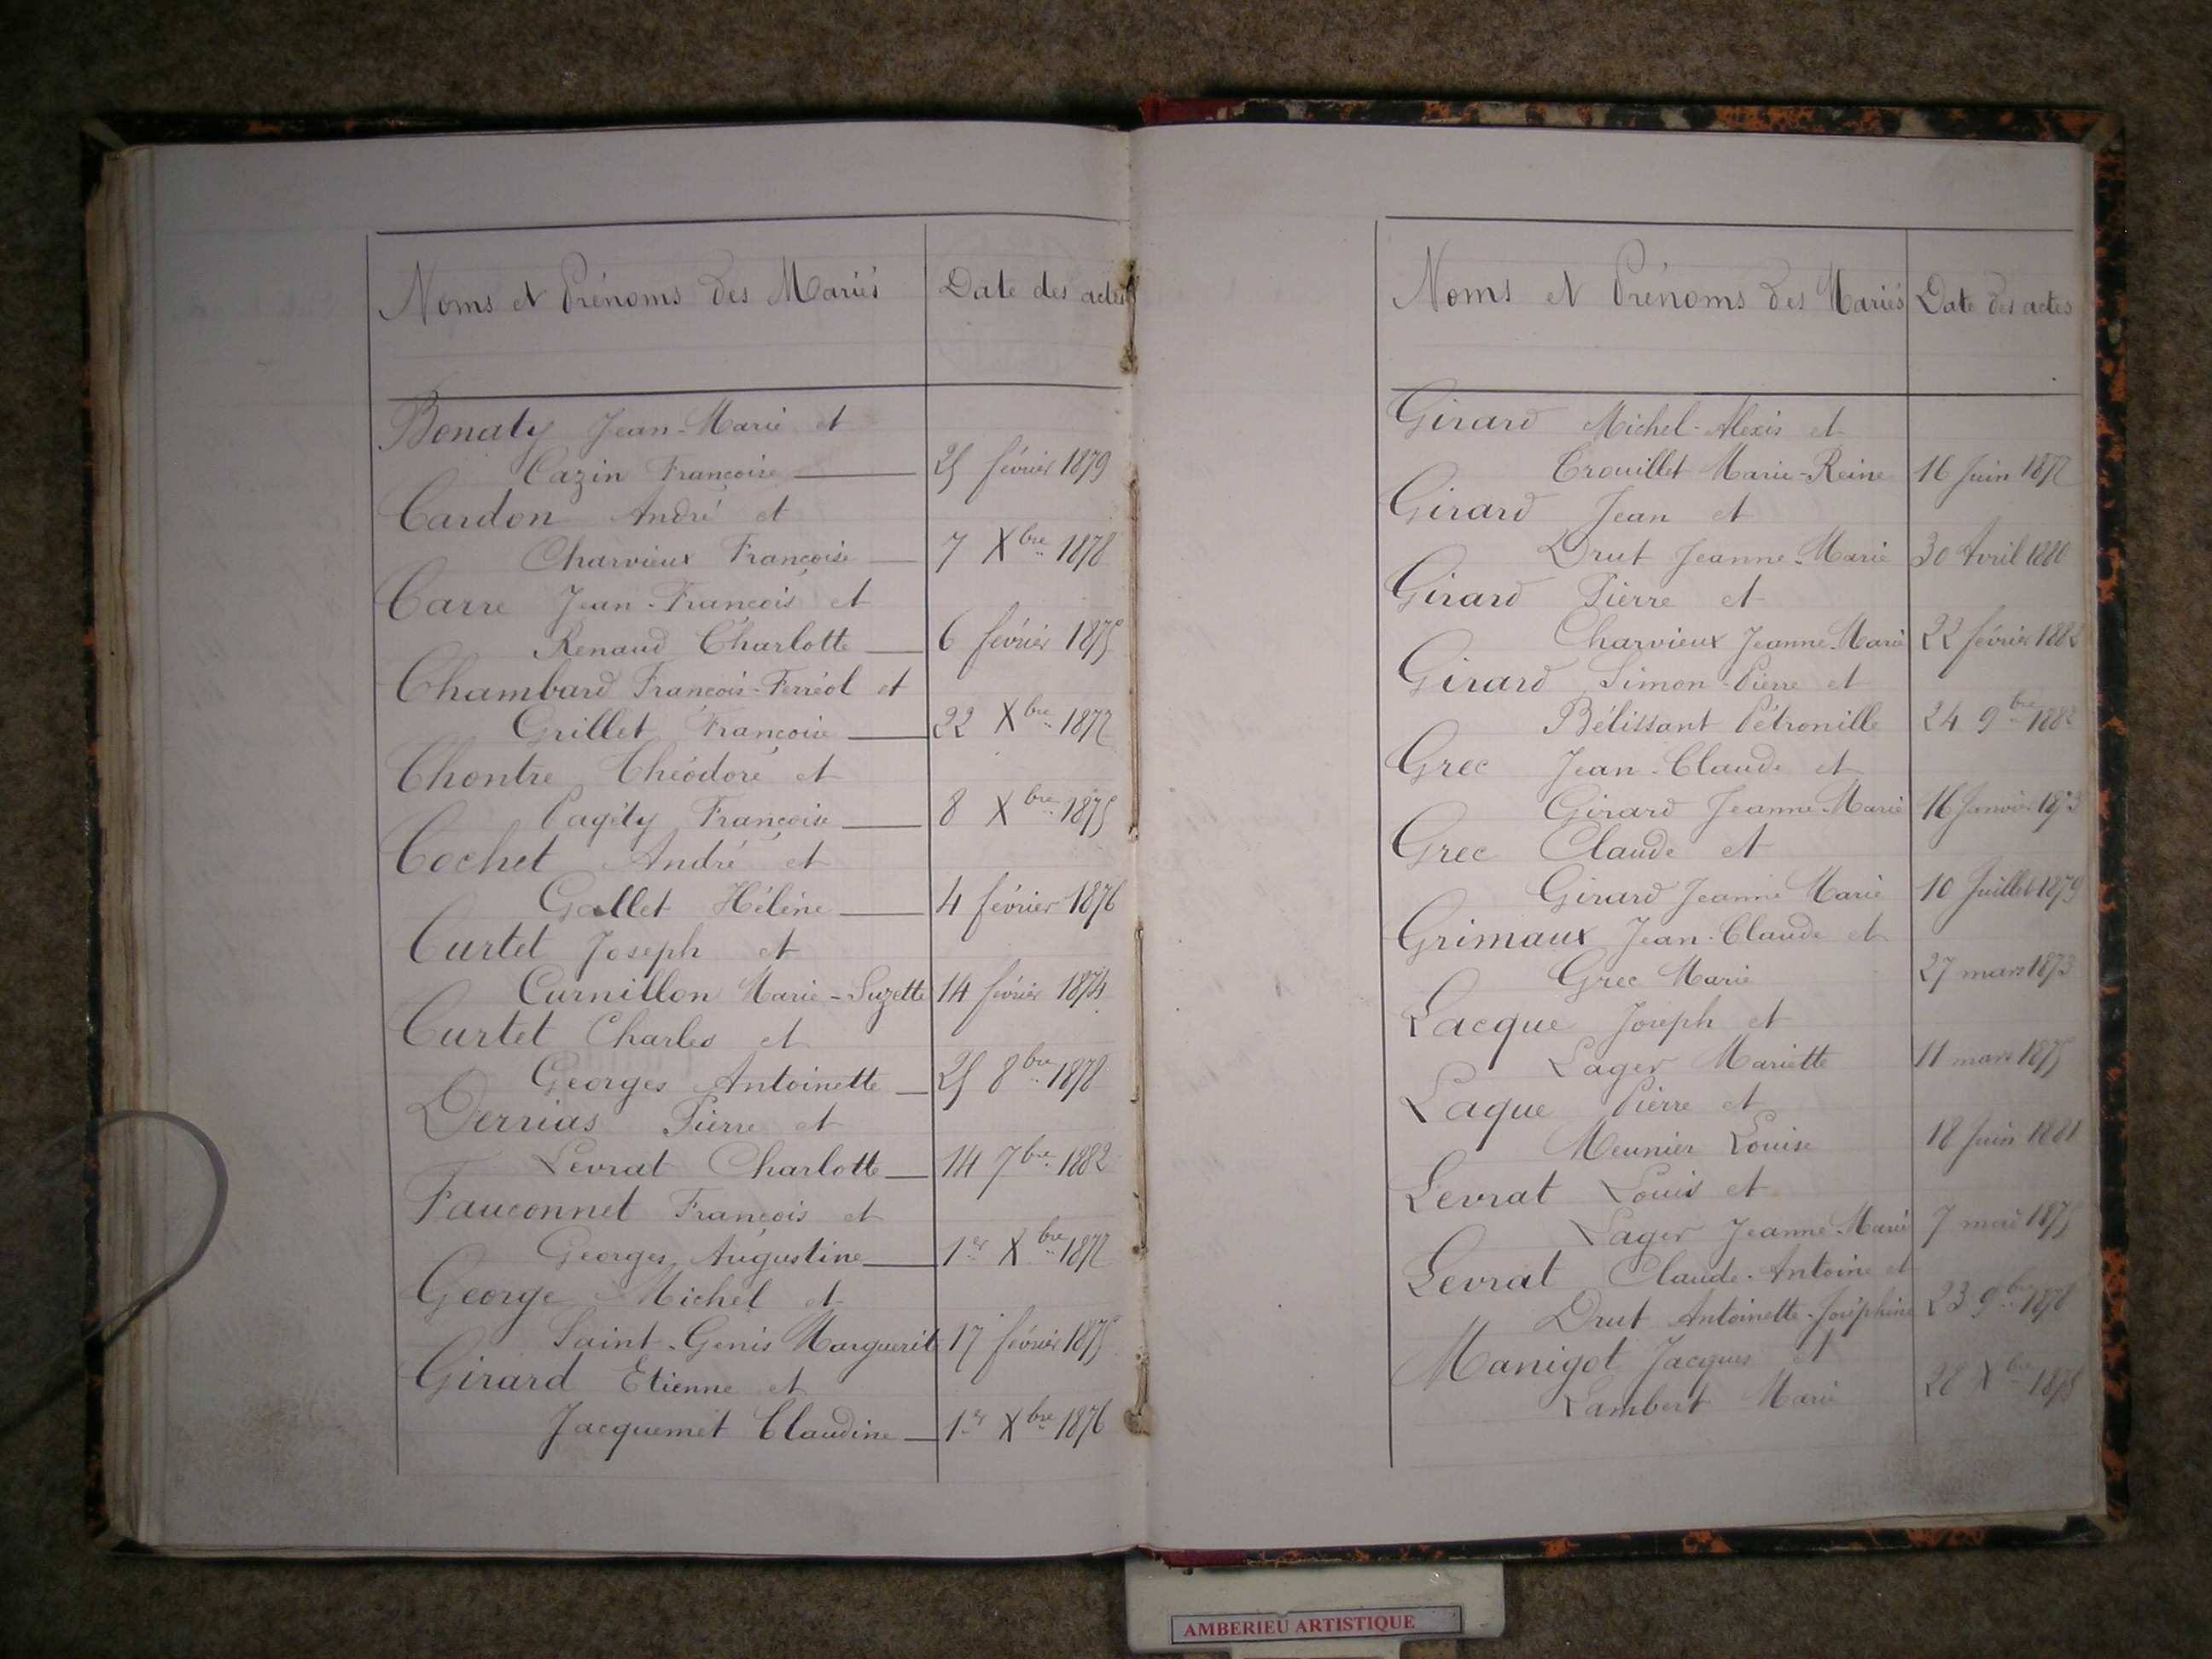 Noms et Prénoms des Mariés
Date des actes
Bonaty Jean-Marie et
Cazin Françoise
25 février 1879
Cardon André et
Charvieux Françoise
7 Xbre 1878
Carre Jean-François et
Renaud Charlotte
6 février 1875
Chambard François-Ferréol et
Grillet Françoise
22 Xbre 1877
Chontre Théodore et
Pagity Françoise
8 Xbre 1875
Cochet André et
Gallet Hélène
4 février 1876
Curtet Joseph et
Curnillon Marie-Suzette
14 février 1874
Curtet Charles et
Georges Antoinette
25 8bre 1878
Derrias Pierre et
Levrat Charlotte
14 7bre 1882
Fauconnet François et
Georges Augustine
1er Xbre 1877
George Michel et
Saint-Genis Marguerite
17 février 1875
Girard Etienne et
Jacquemet Claudine
1er Xbre 1876
Noms et Prénoms des Mariés
Date des actes
Girard Michel-Alexis et
Trouillet Marie-Reine
16 Juin 1877
Girard Jean et
Drut Jeanne-Marie
30 Avril 1880
Girard Pierre et
Charvieux Jeanne-Marie
22 février 1882
Girard Simon-Pierre et
Bélissant Pétronille
24 9bre 1882
Grec Jean-Claude et
Girard Jeanne-Marie
16 Janvier 1873
Grec Claude et
Girard Jeanne Marie
10 Juillet 1879
Grimaux Jean-Claude et
Grec Marie
27 mars 1873
Lacque Joseph et
Lager Mariette
11 mars 1875
Laque Pierre et
Meunier Louise
18 Juin 1881
Levrat Louis et
Lager Jeanne-Marie
7 mai 1875
Levrat Claude-Antoine et
Drut Antoinette-Joséphine
23 9bre 1878
Manigot Jacques et
Lambert Marie
28 Xbre 1875
AMBERIEU ARTISTIQUE